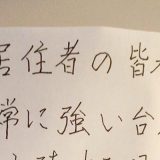 居住者の皆
常に強い台